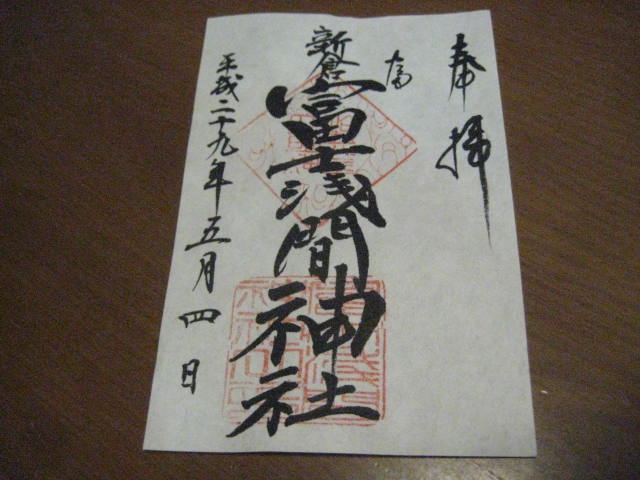 奉拝
新倉
富士浅間神社
平成二十九年五月四日